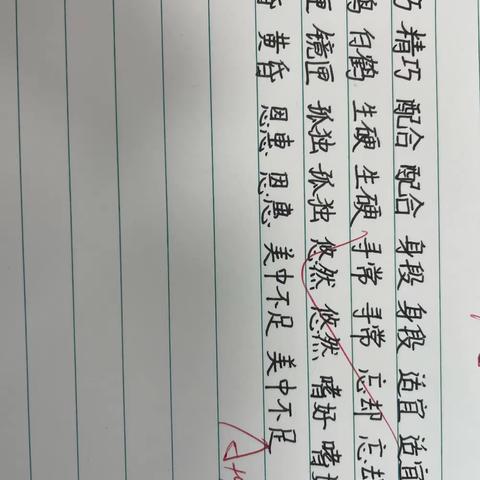 巧 精巧 配合 配合 身段 身段 适宜 适宜
鹤 白鹤 生硬 生硬 寻常 寻常 忘却 忘却
匣 镜匣 孤独 孤独 悠然 悠然 嗜好 嗜
昏 黄昏 恩惠 恩惠 美中不足 美中不足